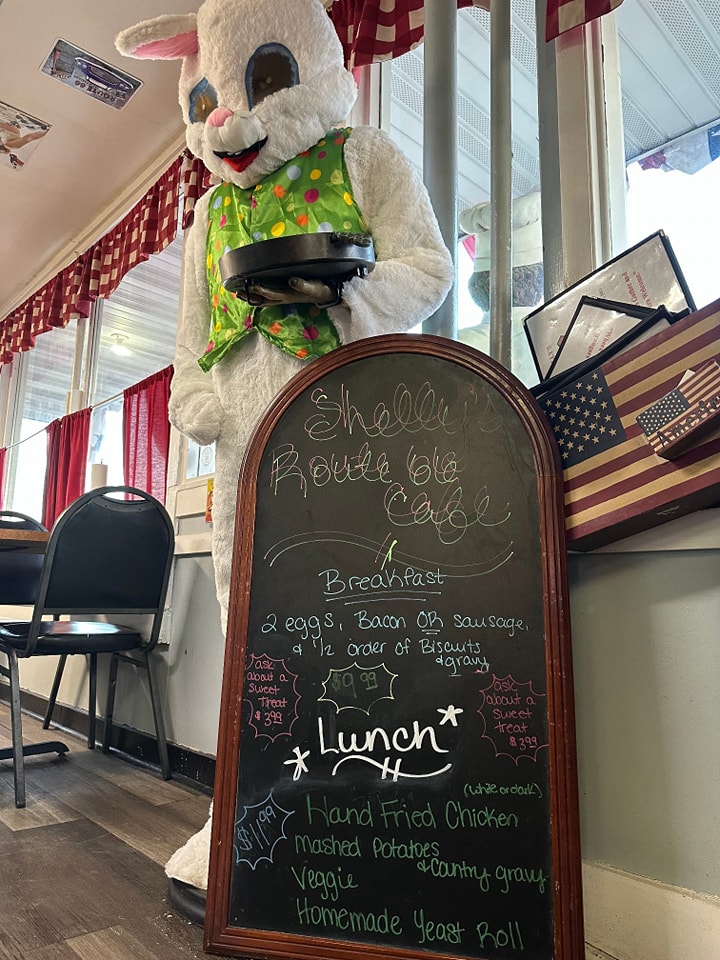 Shelly's
Route 66
Cafe
Breakfast
2 eggs, Bacon OR sausage,
& 1/2 order of Biscuits
& gravy
ask
about a
sweet
Treat
$3.99
$9.99
ask
about a
sweet
treat
$3.99
*Lunch*
(white or dark)
$11.99
Hand Fried Chicken
Mashed Potatoes
& Country gravy
Veggie
Homemade Yeast Roll